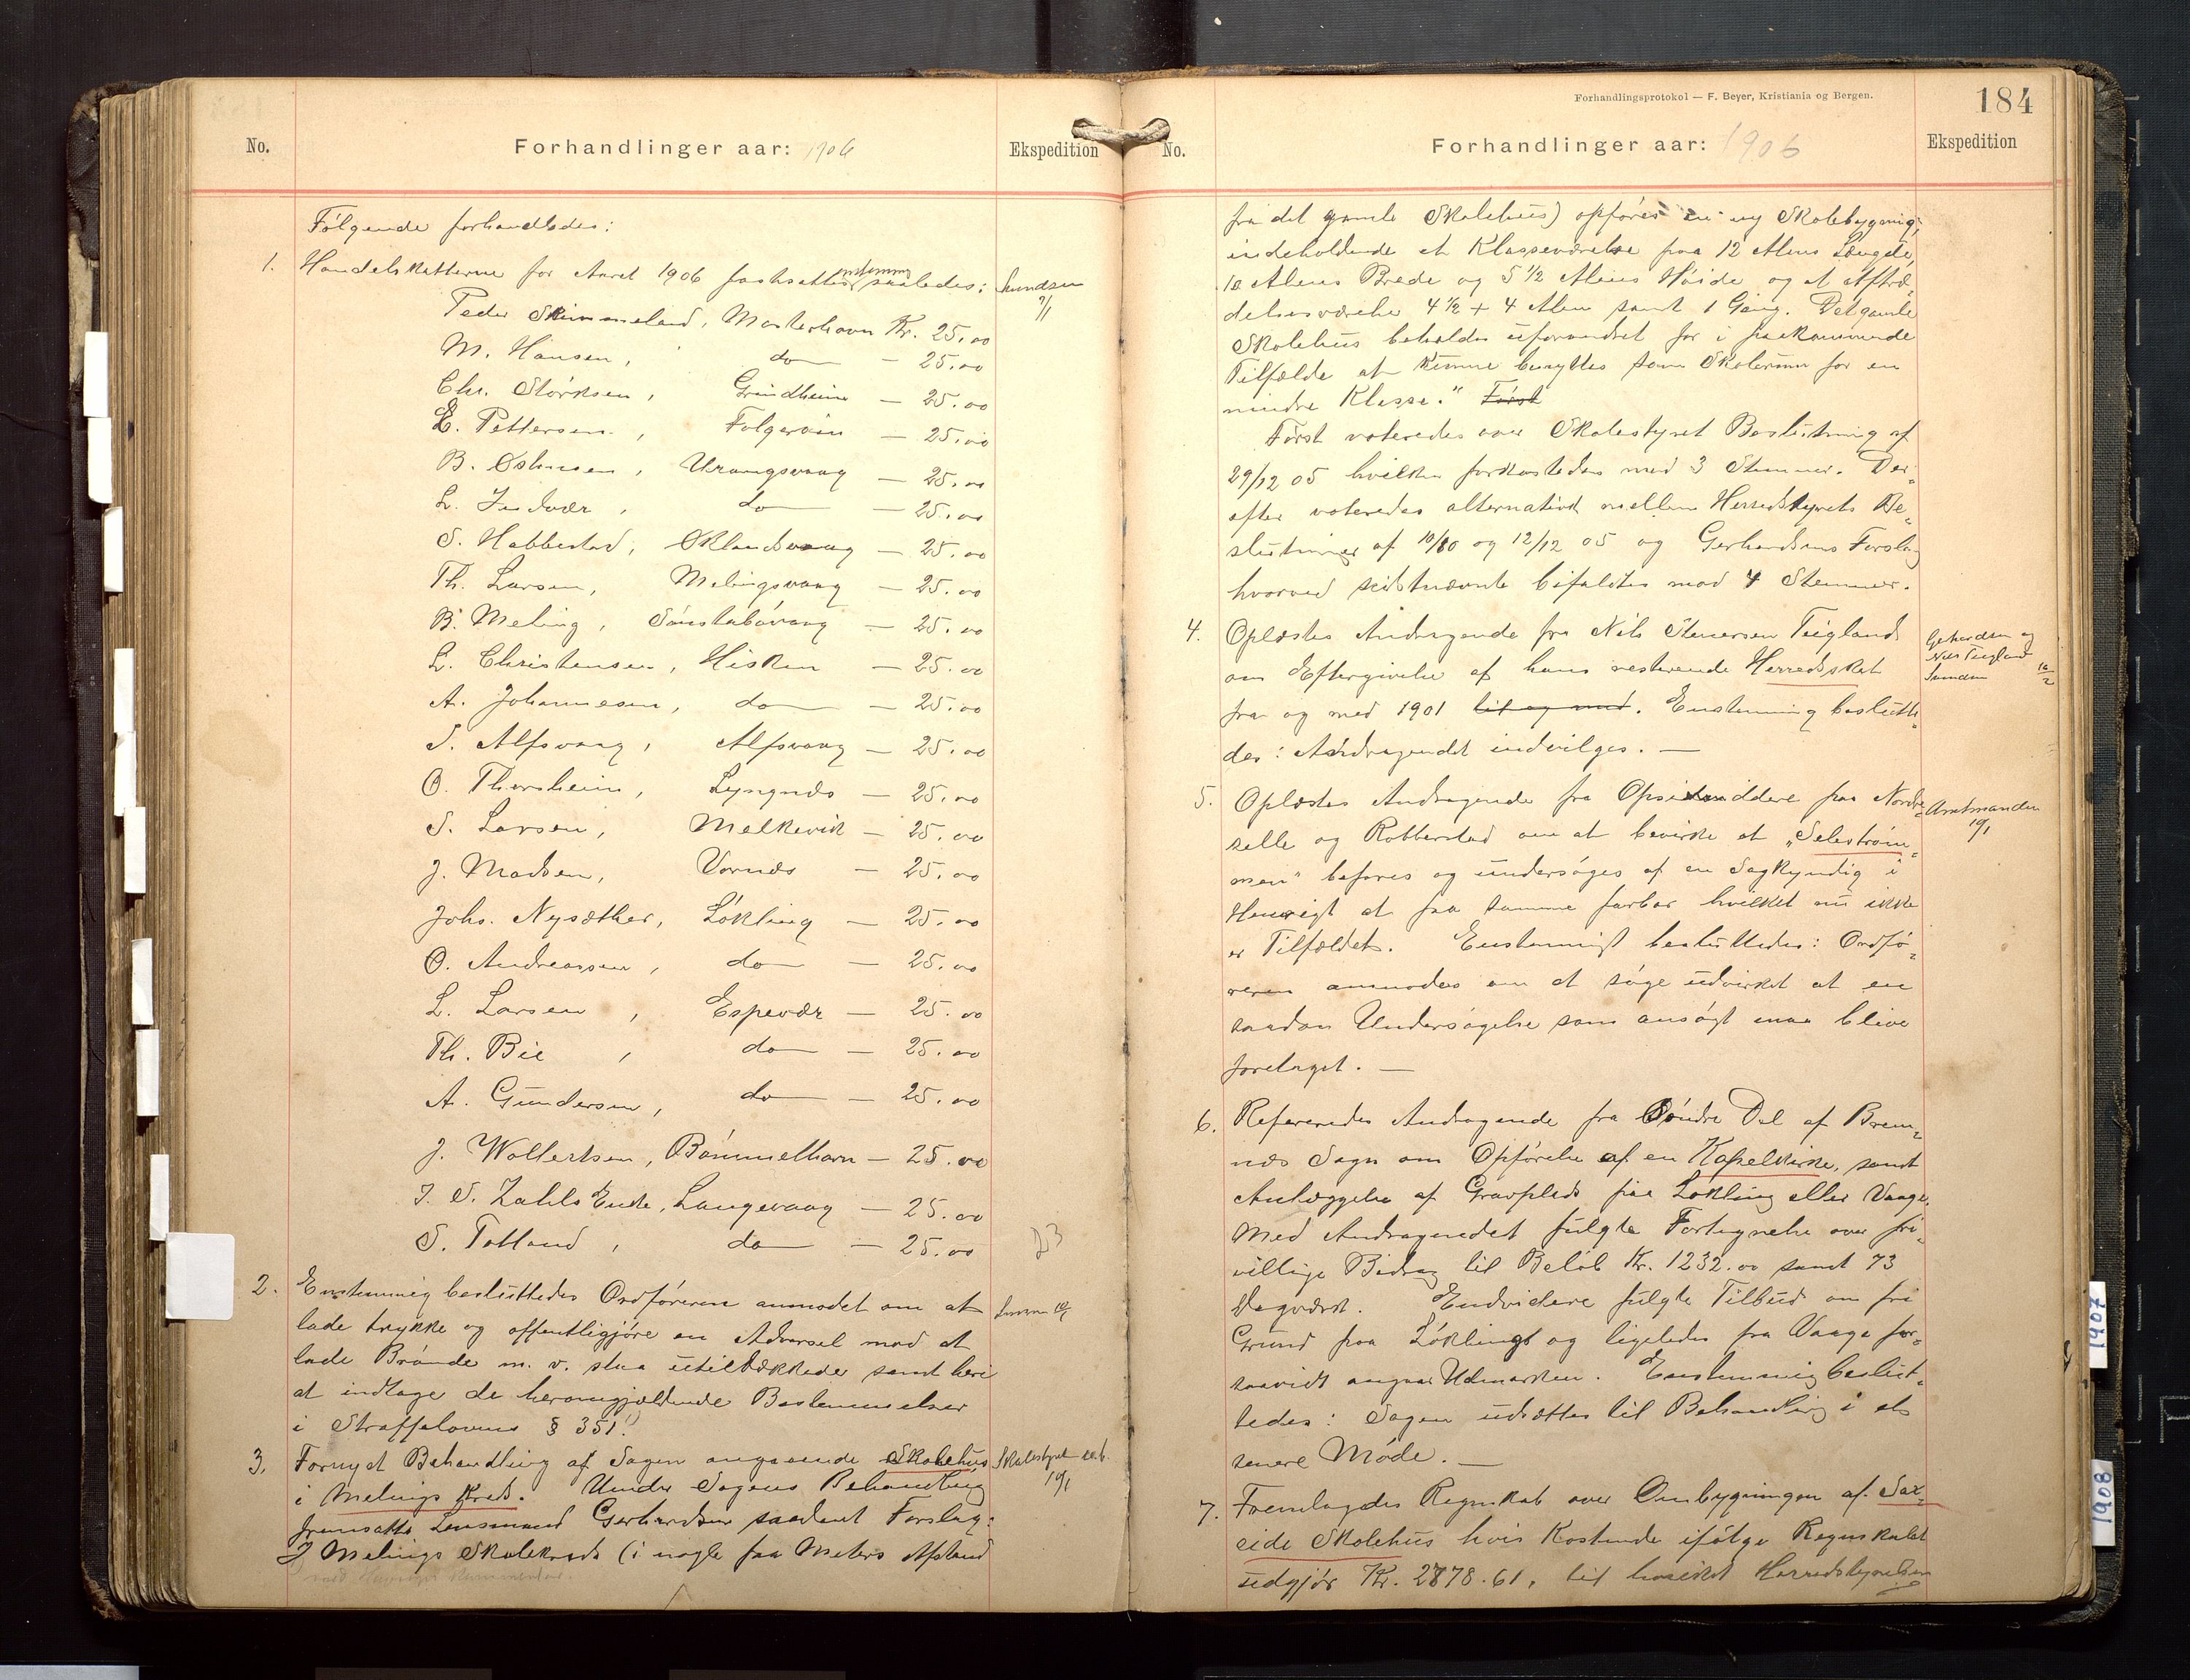 No.
Forhandlinger aar: 1906
Ekspedition
Følgende forhandledes:
1. Handelskatterne for Aaret 1906 fastsattes enstemmig saaledes:
7/1
Peder Skimmeland, Mosterhavn Kr. 25,00
M. Hansen, do — 25.00
Chr. Størksen, Grindheim — 25.00
E. Pettersen, Folgerøen — 25,00
B. Østensen, Urangsvaag — 25.00
L. Indvær, do — 25.00
S. Habbestad, Øklandsvaag — 25.00
Th. Larsen, Melingsvaag — 25.00
B. Meling, Sønstabøvaag — 25.00
L. Christensen, Hisken — 25.00
A. Johannesen, do — 25.00
S. Alfsvaag, Alfsvaag — 25.00
O. Thorsheim, Lyngnæs — 25.00
S. Larsen, Melkevik — 25.00
J. Madsen, Vornæs — 25.00
Johs. Nysæther, Løkling — 25.00
O. Andreassen, do — 25.00
L. Larsen, Espevær — 25.00
Th. Bie, do — 25.00
A. Gundersen, do — 25.00
J. Wollertsen, Bømmelhavn — 25.00
J. S. Zahls Enke, Langevaag — 25.00
S. Totland, do — 25.00
23
2. Enstemmig besluttedes Ordføreren anmodet om at
lade trykke og offentligjøre en Advarsel mod at
lade Brønde m. v. staa utildækkede samt heri
at indtage de heromgjældende Bestemmelser
i Straffelovens § 351.
3. Fornyet Behandling af Sagen angaaende Skolehus
Skolestyret
10/1
i Melings Kreds. Under Sagens Behandling
fremsatte Lensmand Gerhardsen saadant Forslag:
I Melings Skolekreds (i nogle faa Meters Afstand
Forhandlingsprotokol — F. Beyer, Kristiania og Bergen.
184
No.
Forhandlinger aar: 1906
Ekspedition
fra det gamle Skolehus) opføres en ny Skolebygning,
indeholdende et Klasseværelse paa 12 Alens Længde,
10 Alens Brede og 5 1/2 Alens Høide og et Aftræ-
delsesværelse 4 1/2 + 4 Alen samt 1 Gang. Det gamle
Skolehus beholdes uforandret for i paakommende
Tilfælde at kunne benyttes som Skolerum for en
mindre Klasse." Først
Først voteredes over Skolestyret Beslutning af
29/12 05 hvilken forkastedes med 3 Stemmer. Der-
efter voteredes alternativt mellem Herredstyrets Be-
slutninger af 10/10 og 12/12 05 og Gerhardsens Forslag
hvorved sidstnævnte bifaldtes mod 4 Stemmer.
4. Oplæstes Andragende fra Nils Stenersen Teigland
Gerhardsen og
Nils Teigland
om Eftergivelse af hans resterende Herredsskat
fra og med 1901 til og med. Enstemmig beslutte-
des: Andragendet indvilges. —
5. Oplæstes Andragende fra Opsiddere paa Nordre
Amtmanden
10/1
Selle og Rolberstad om at bevirke at „Selestrøm-
men" befares og undersøges af en Sagkyndig i
Henseigt at faa samme farbar hvilket nu ikke
er Tilfældet. Enstemmigt besluttedes: Ordfø-
reren anmodes om at søge udvirket at en
saadan Undersøgelse som ansøgt maa blive
foretaget. —
6. Refereredes Andragende fra Søndre Del af Brem-
næs Sogn om Opførelse af en Kapelkirke, samt
Anlæggelse af Gravplads paa Løkling eller Vaage.
Med Andragendet fulgte Fortegnelse over fri-
villige Bidrag til Beløb Kr. 1232.00 samt 73
Dagværk. Endvidere fulgte Tilbud om fri
Grund paa Løkling og ligeledes fra Vaage for-
saavidt angaar Udmarken. Enstemmig beslut-
tedes: Sagen udsættes til Behandling i et
senere Møde. —
7. Fremlagdes Regnskab over Ombygningen af Sax-
eide Skolehus hvis Kostende ifølge Regnskabet
udgjør Kr. 2878.61, til hvilket Herredstyrelsen
1907
1908